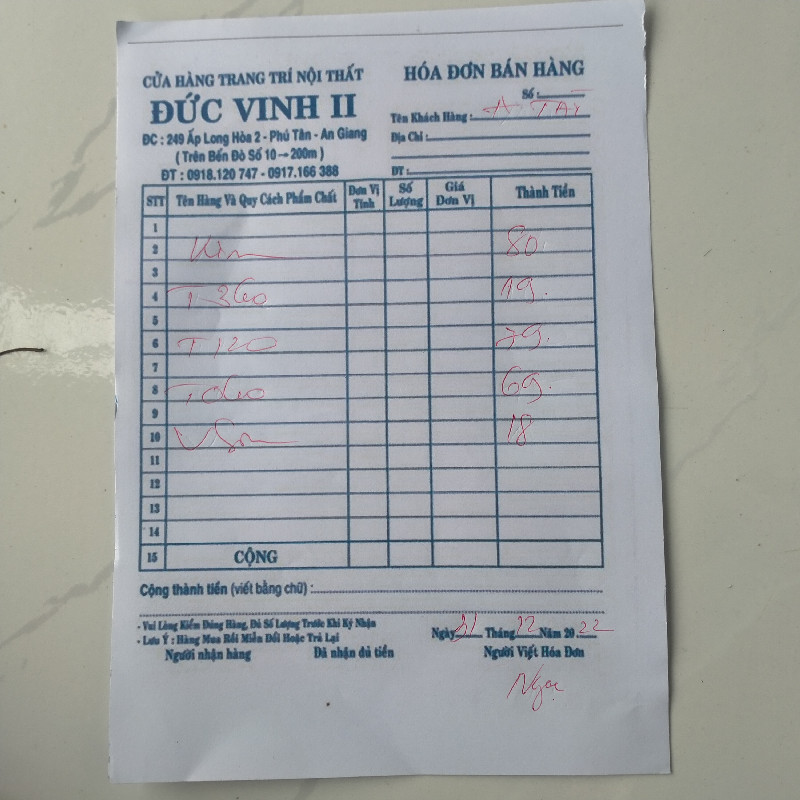 CỬA HÀNG TRANG TRÍ NỘI THẤT
ĐỨC VINH II
ĐC : 249 Ấp Long Hòa 2 - Phú Tân - An Giang
( Trên Bến Đò Số 10 → 200m )
ĐT : 0918.120 747 - 0917.166 388
HÓA ĐƠN BÁN HÀNG
Số :
Tên Khách Hàng : A TÀI
Địa Chỉ :
ĐT :
STT Tên Hàng Và Quy Cách Phẩm Chất Đơn Vị Tính Số Lượng Giá Đơn Vị Thành Tiền
1
2 Kim 80.
3
4 T360 19.
5
6 T120 79.
7
8 T060 69.
9
10 V Sơn 18
11
12
13
14
15 CỘNG
Cộng thành tiền (viết bằng chữ) :
- Vui Lòng Kiểm Đúng Hàng, Đủ Số Lượng Trước Khi Ký Nhận
- Lưu Ý : Hàng Mua Rồi Miễn Đổi Hoặc Trả Lại
Ngày 31 Tháng 12 Năm 20 22
Người nhận hàng Đã nhận đủ tiền Người Viết Hóa Đơn
Ngọc